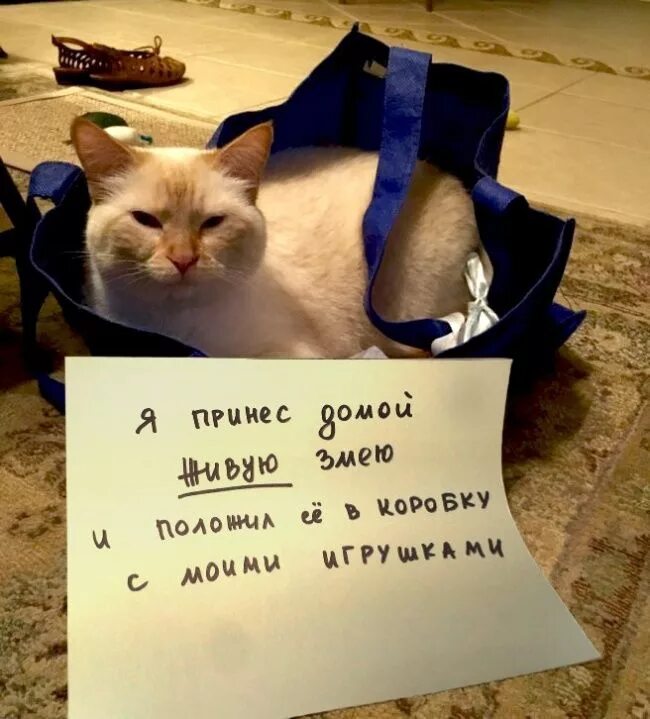 Я ПРИНЕС домой
ЖИВУЮ Змею
и ПОЛОЖИЛ её в КОРОБКУ
с моими ИГРУШКАМИ